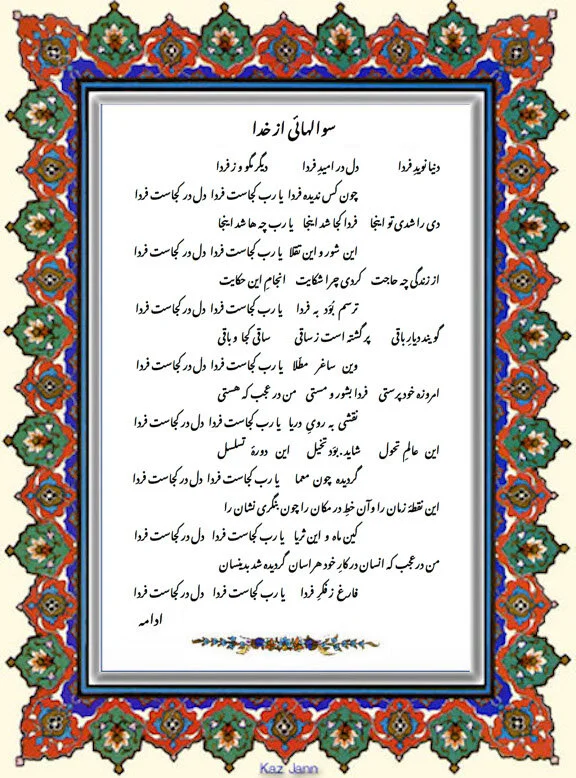 سوالهائی از خدا
دنیا نویدِ فردا دل در امیدِ فردا دیگر مگو ز فردا
چون کس ندیده فردا یا رب کجاست فردا دل در کجاست فردا
دی را شدی تو اینجا فردا کجا شد اینجا یا رب چه ها شد اینجا
این شور و این تقلا یا رب کجاست فردا دل در کجاست فردا
از زندگی چه حاجت کردی چرا شکایت انجامِ این حکایت
ترسم بُوَد به فردا یا رب کجاست فردا دل در کجاست فردا
گویند دیارِ باقی پر گشته است ز ساقی ساقی کجا و باقی
وین ساغر مطّلا یا رب کجاست فردا دل در کجاست فردا
امروزه خود پرستی فردا بشور و مستی من در عجب که هستی
نقشی به رویِ دریا یا رب کجاست فردا دل در کجاست فردا
این عالمِ تحول شاید بُوَد تخیل این دورهٔ تسلسل
گردیده چون معما یا رب کجاست فردا دل در کجاست فردا
این نقطهٔ زمان را وآن خطِ در مکان را چون بنگری نشان را
کین ماه و این ثریا یا رب کجاست فردا دل در کجاست فردا
من در عجب که انسان در کارِ خود هراسان گردیده شد بدینسان
فارغ ز فکرِ فردا یا رب کجاست فردا دل در کجاست فردا
ادامه
Kaz Jann